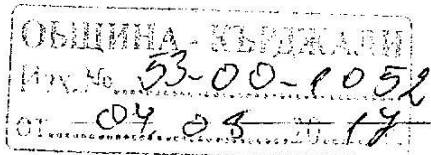 ОБЩИНА - КЪРДЖАЛИ
Изх. № 53-00-1052
от 04.08 2017